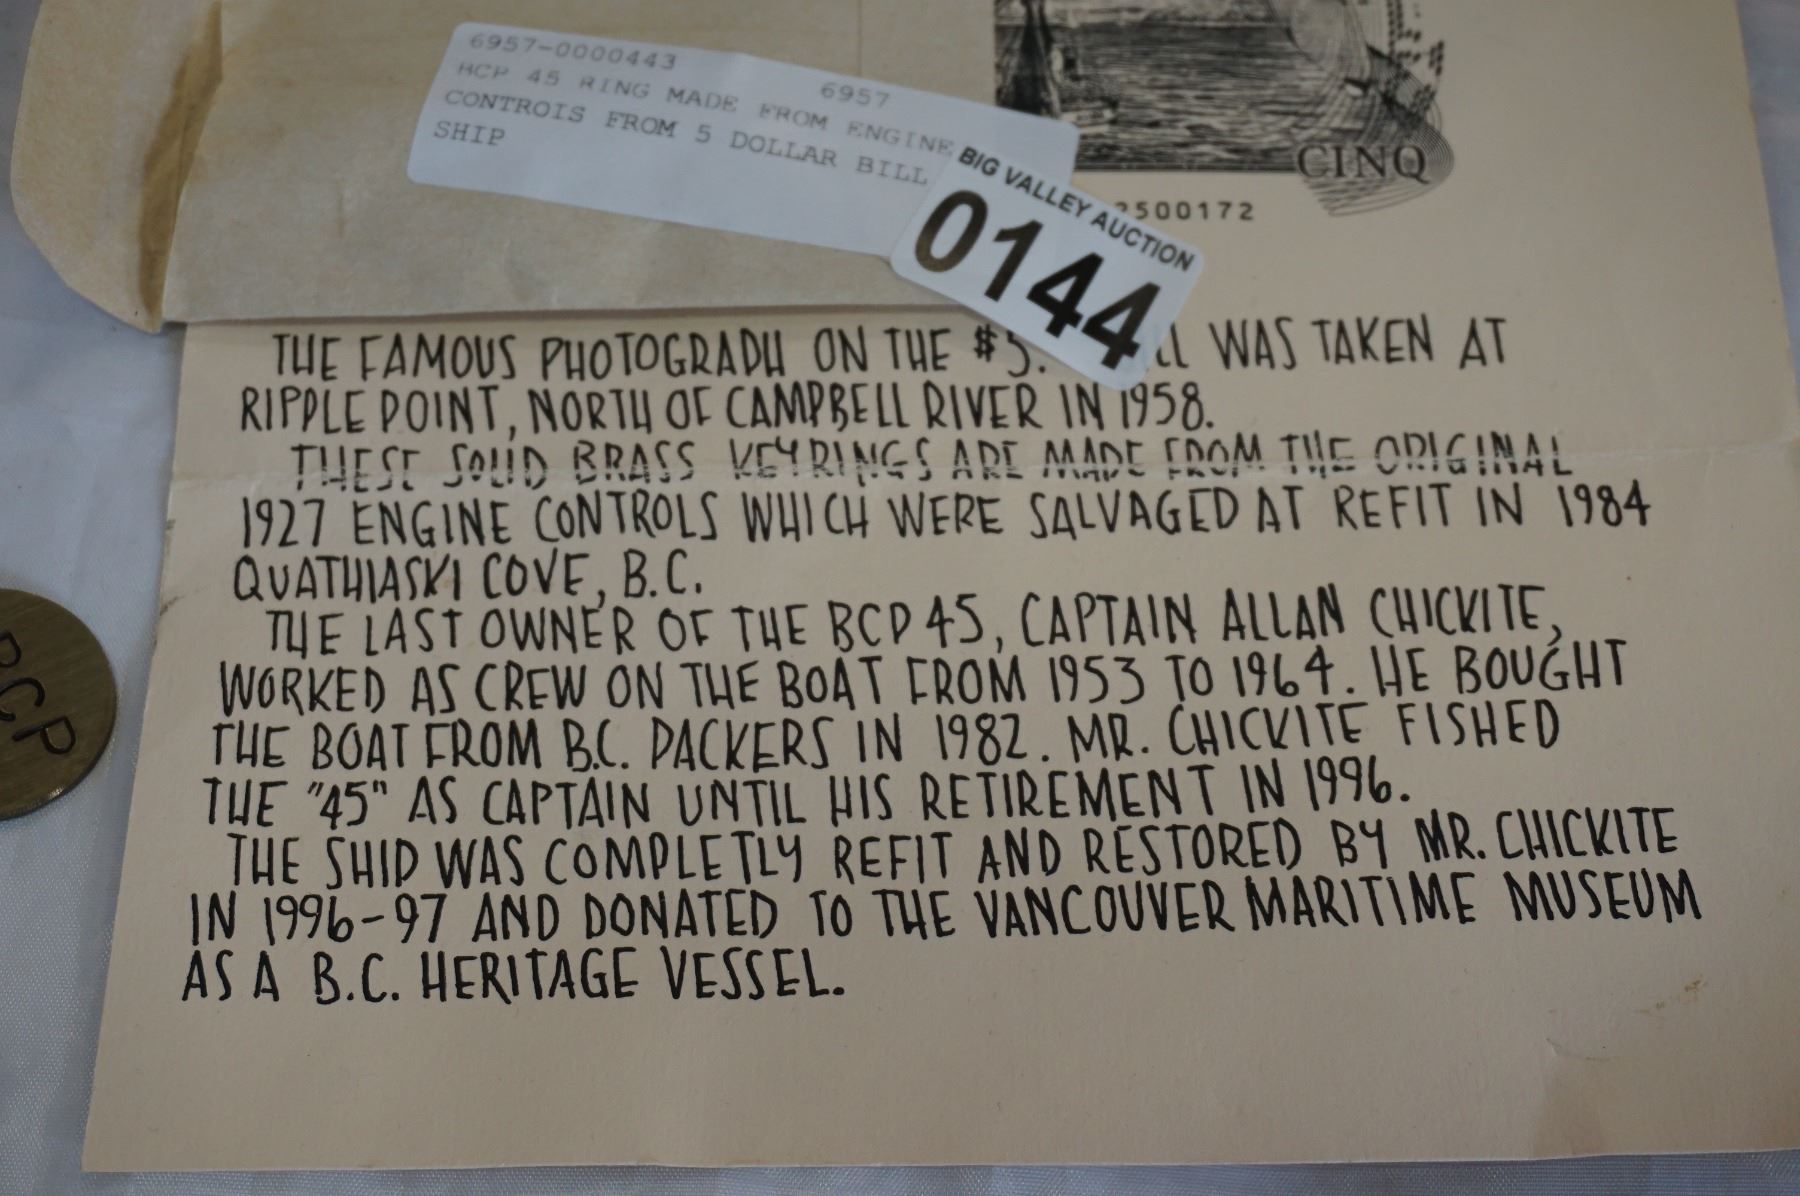 6957-0000443
6957
BCP 45 RING MADE FROM ENGINE
CONTROIS FROM 5 DOLLAR BILL
SHIP
BIG VALLEY AUCTION
0144
CINQ
2500172
THE FAMOUS PHOTOGRAPH ON THE $5. WAS TAKEN AT
RIPPLE POINT, NORTH OF CAMPBELL RIVER IN 1958.
THESE SOLID BRASS KEYRINGS ARE MADE FROM THE ORIGINAL
1927 ENGINE CONTROLS WHICH WERE SALVAGED AT REFIT IN 1984
QUATHIASKI COVE, B.C.
THE LAST OWNER OF THE BCP 45, CAPTAIN ALLAN CHICKITE,
WORKED AS CREW ON THE BOAT FROM 1953 TO 1964. HE BOUGHT
THE BOAT FROM B.C. PACKERS IN 1982. MR. CHICKITE FISHED
THE "45" AS CAPTAIN UNTIL HIS RETIREMENT IN 1996.
THE SHIP WAS COMPLETLY REFIT AND RESTORED BY MR. CHICKITE
IN 1996-97 AND DONATED TO THE VANCOUVER MARITIME MUSEUM
AS A B.C. HERITAGE VESSEL.
BCP